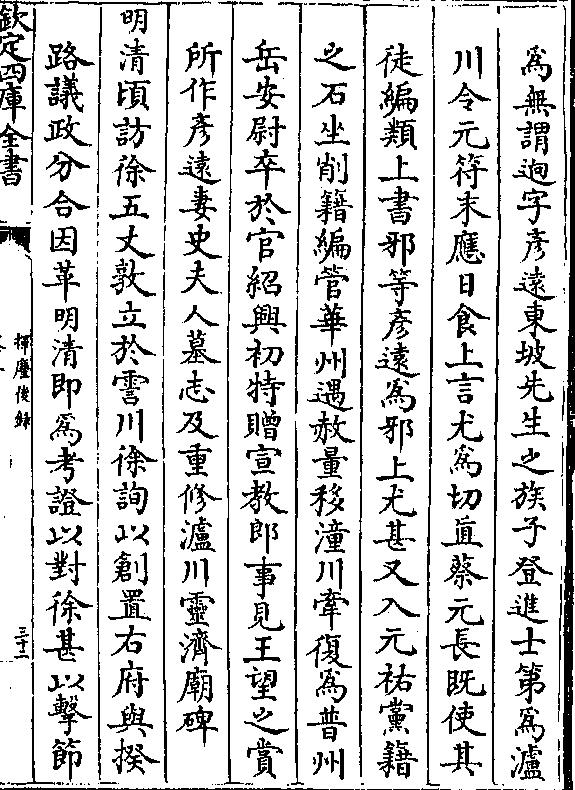 為無謂迥字彥遠東坡先生之族子登進士第為瀘
川令元符末應日食上言尤為切直蔡元長既使其
徒編類上書邪等彥遠為邪上尤甚又入元祐黨籍
之石坐削籍編管華州遇赦量移潼川牽復為普州
岳安尉卒於官紹興初特贈宣教郎事見王望之賞
所作彥遠妻史夫人墓志及重修瀘川靈濟廟碑
明清頃訪徐五丈敦立於霅川徐詢以創置右府與揆
路議政分合因革明清即為考證以對徐甚以擊節
欽定四庫全書
揮麈後錄
三十二